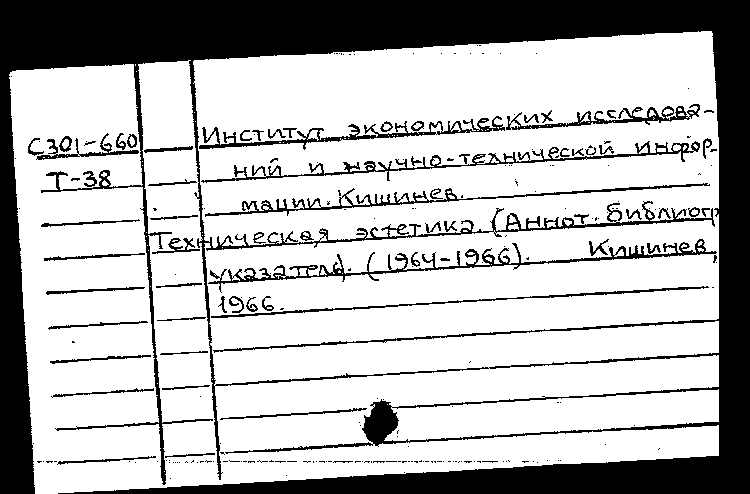 С301-660 Институт экономических исследова-
Т-38 ний и научно-технической инфор-
мации. Кишинев.
Техническая эстетика. (Аннот. библиогр
указатель). (1964-1966). Кишинев,
1966.